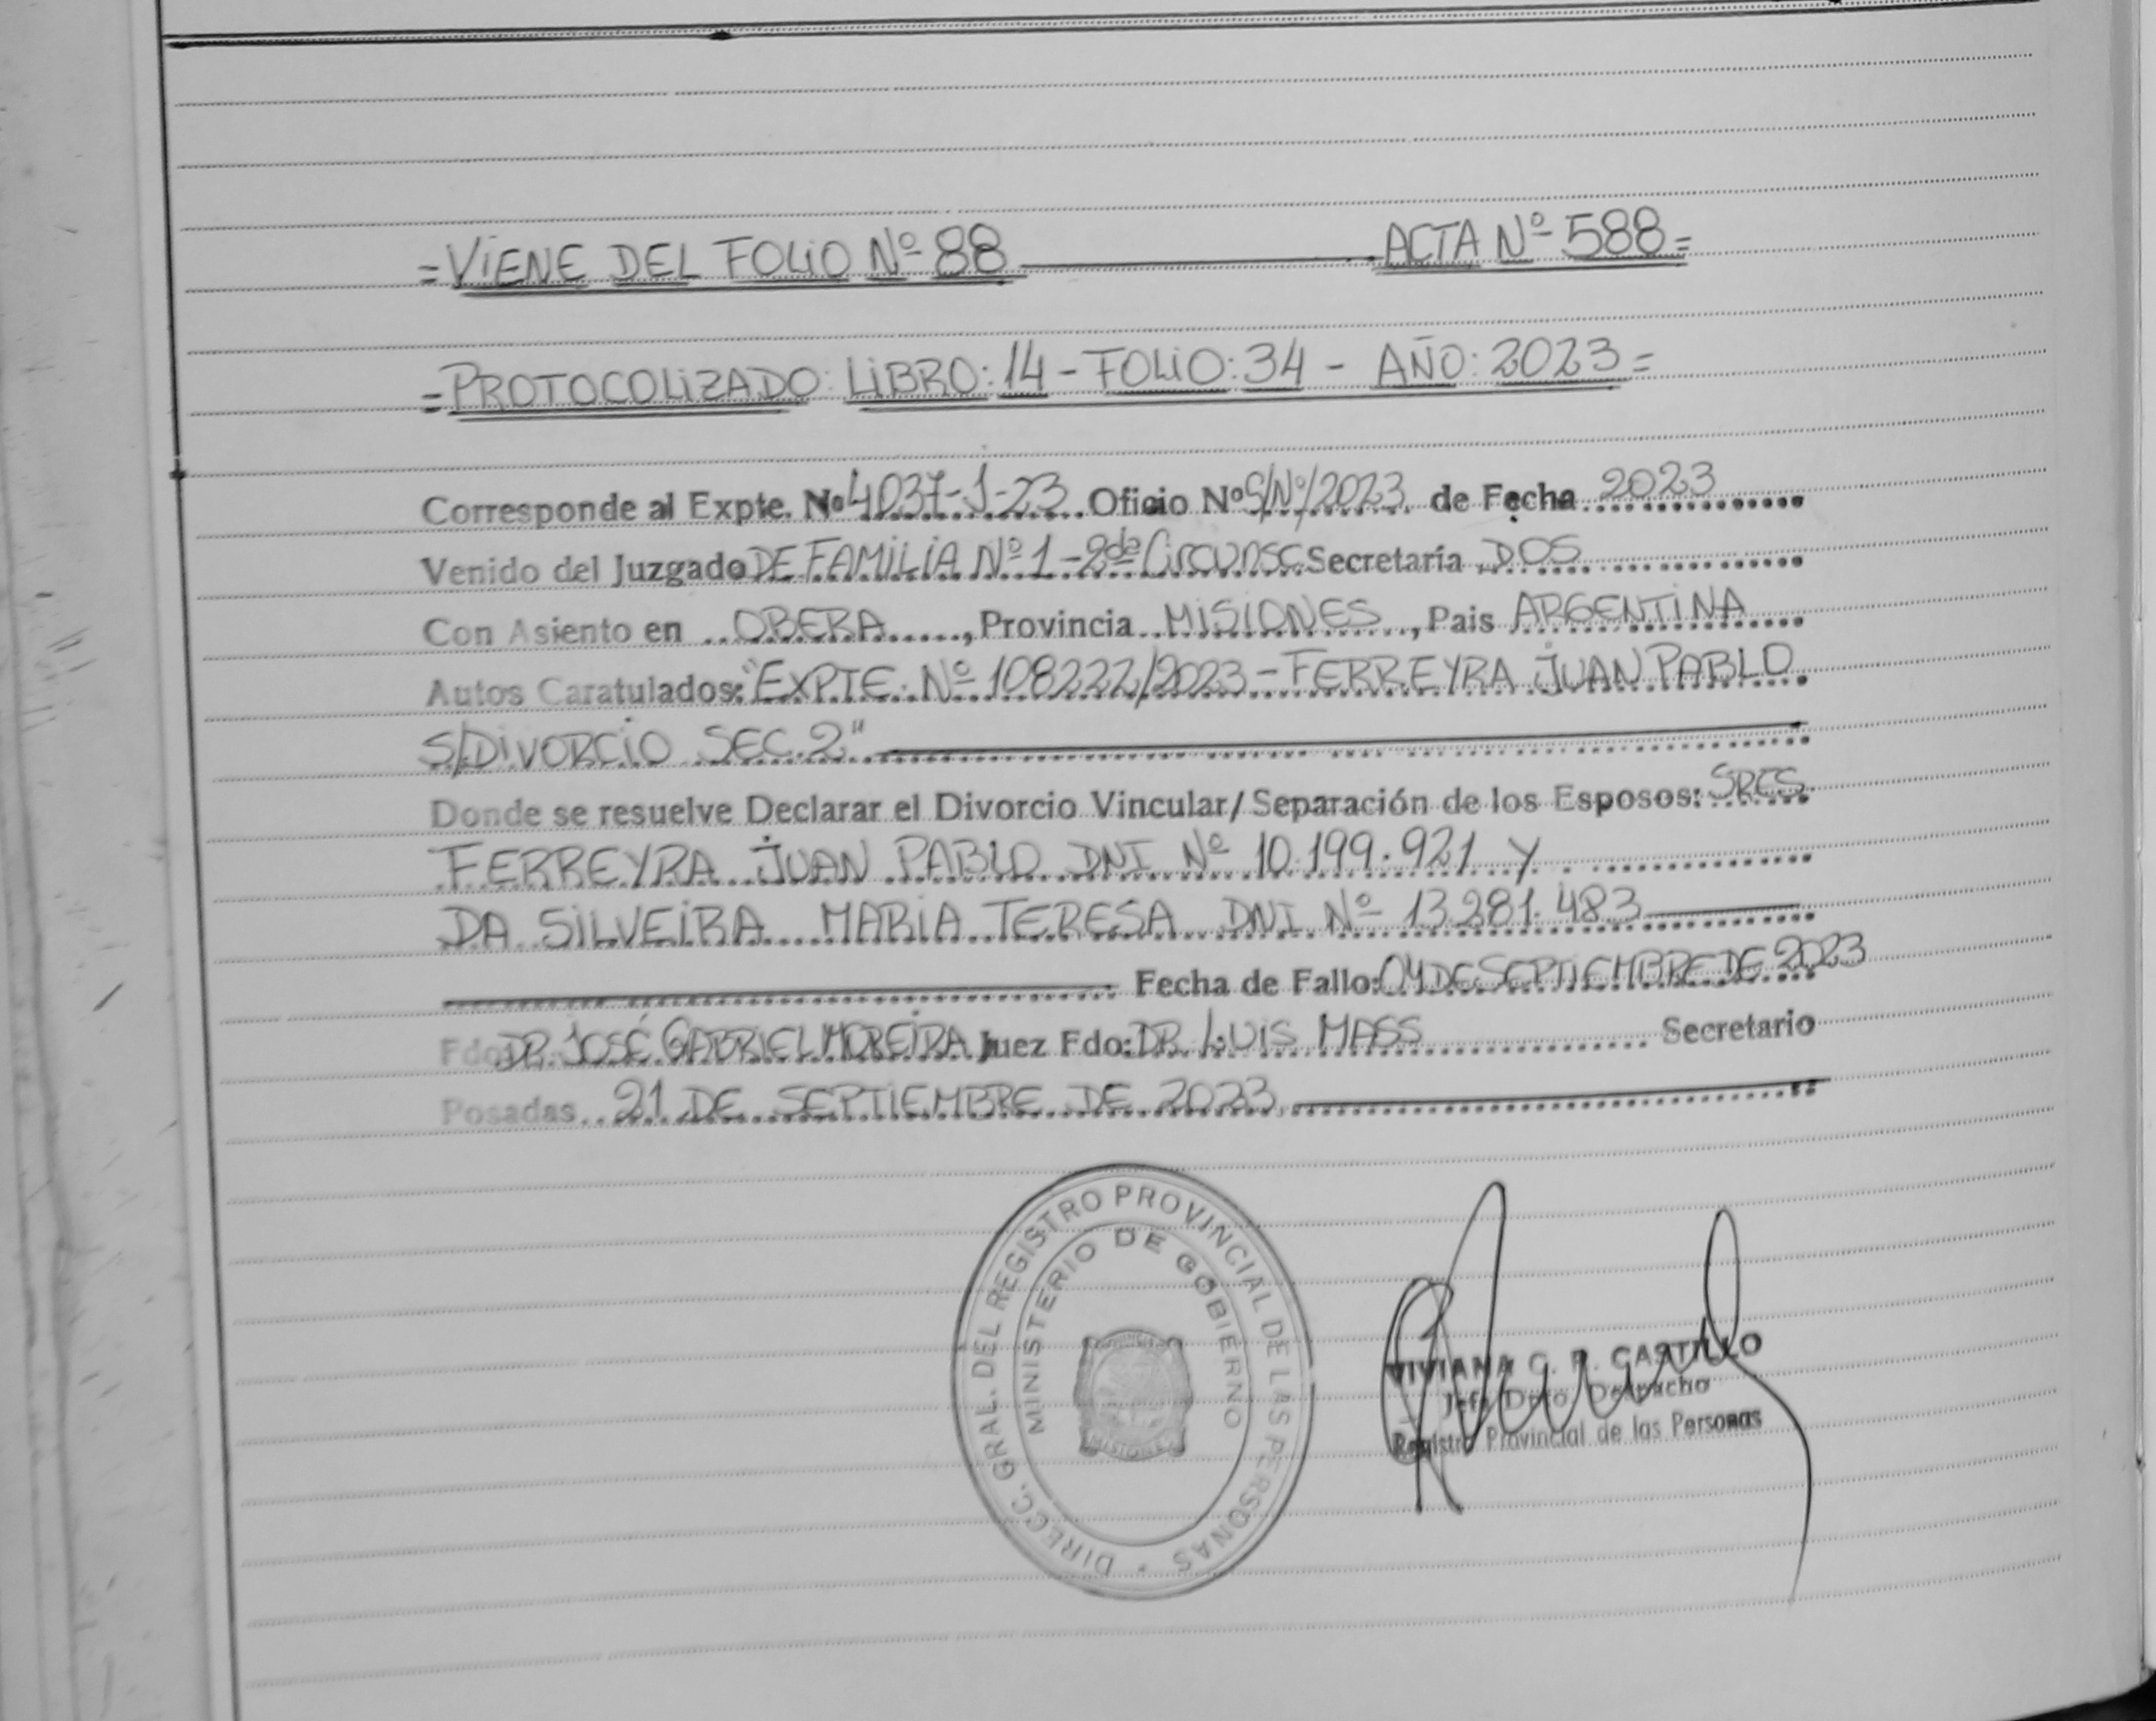 =VIENE DEL FOLIO Nº 88 ACTA Nº 588=
=PROTOCOLIZADO: LIBRO: 14 - FOLIO: 34 - AÑO: 2023=
Corresponde al Expte. Nº 4037-J-23 Oficio Nº S/Nº/2023 de Fecha 2023
Venido del Juzgado DE FAMILIA Nº 1 - 2da CircunSC Secretaría DOS
Con Asiento en OBERA, Provincia MISIONES, Pais ARGENTINA
Autos Caratulados: "EXPTE. Nº 108222/2023 - FERREYRA JUAN PABLO
S/DIVORCIO SEC. 2"
Donde se resuelve Declarar el Divorcio Vincular/Separación de los Esposos: SRES
FERREYRA JUAN PABLO DNI Nº 10.199.921 Y
DA SILVEIRA MARIA TERESA DNI Nº 13.281.483
Fecha de Fallo: 04 DE SEPTIEMBRE DE 2023
Fdo: DR. JOSÉ GABRIEL MOREIRA Juez Fdo: DR. LUIS MASS Secretario
Posadas, 21 DE SEPTIEMBRE DE 2023
DIRECC. GRAL. DEL REGISTRO PROVINCIAL DE LAS PERSONAS
MINISTERIO DE GOBIERNO
PROVINCIA
MISIONES
VIVIANA C. R. CASTILLO
Jefa Dpto. Despacho
Registro Provincial de las Personas